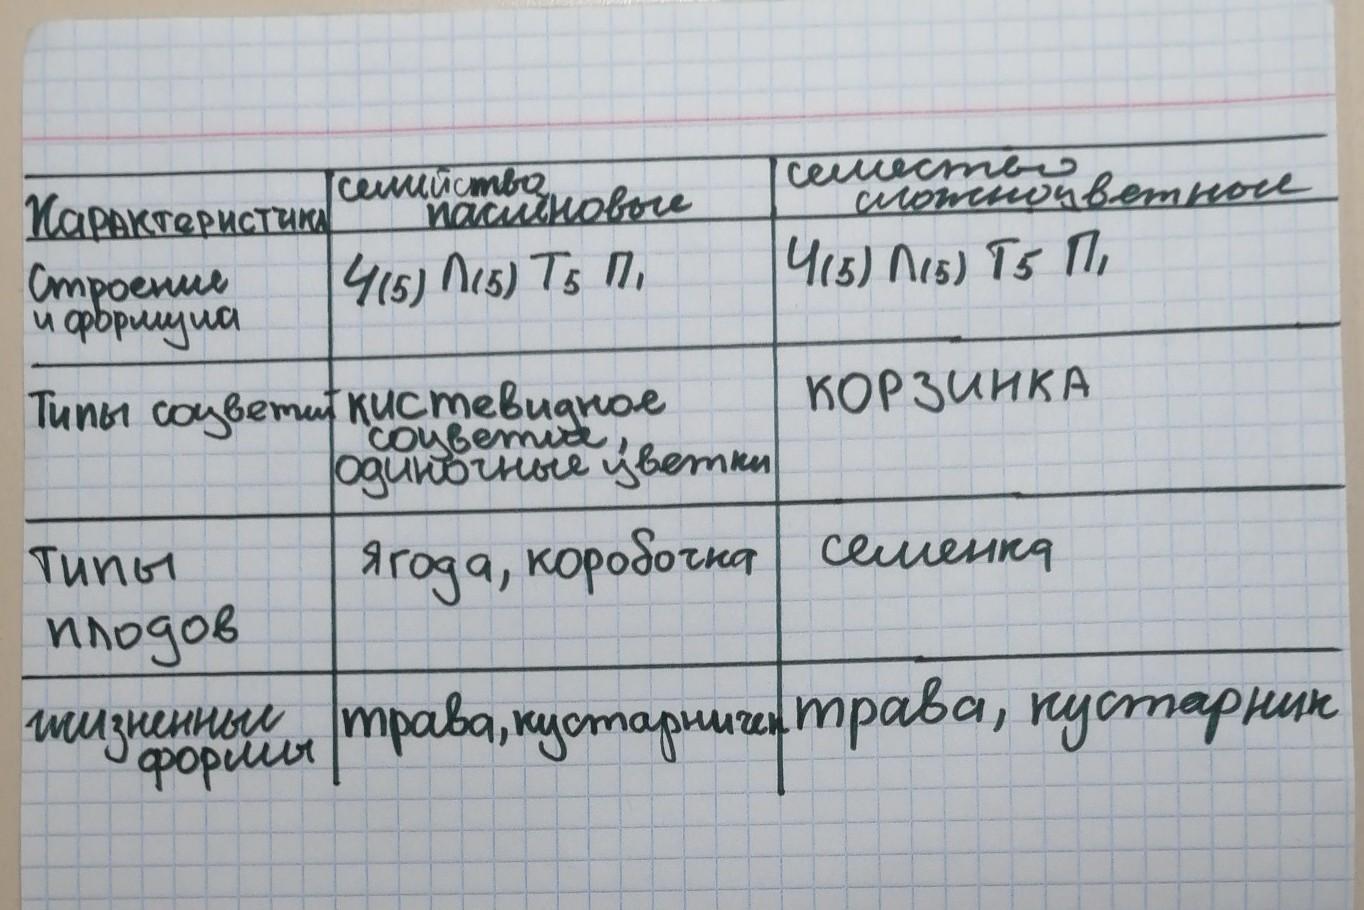 Характеристика
семийства
паслиновые
семество
сложноцветные
Строение
и формула
Ч(5) Л(5) Т5 П1
Ч(5) Л(5) Т5 П1
Типы соцветий
кистевидное
соцветие,
одиночные цветки
КОРЗИНКА
Типы
плодов
ягода, коробочка
семенка
жизненные
формы
трава, кустарничек
трава, кустарник